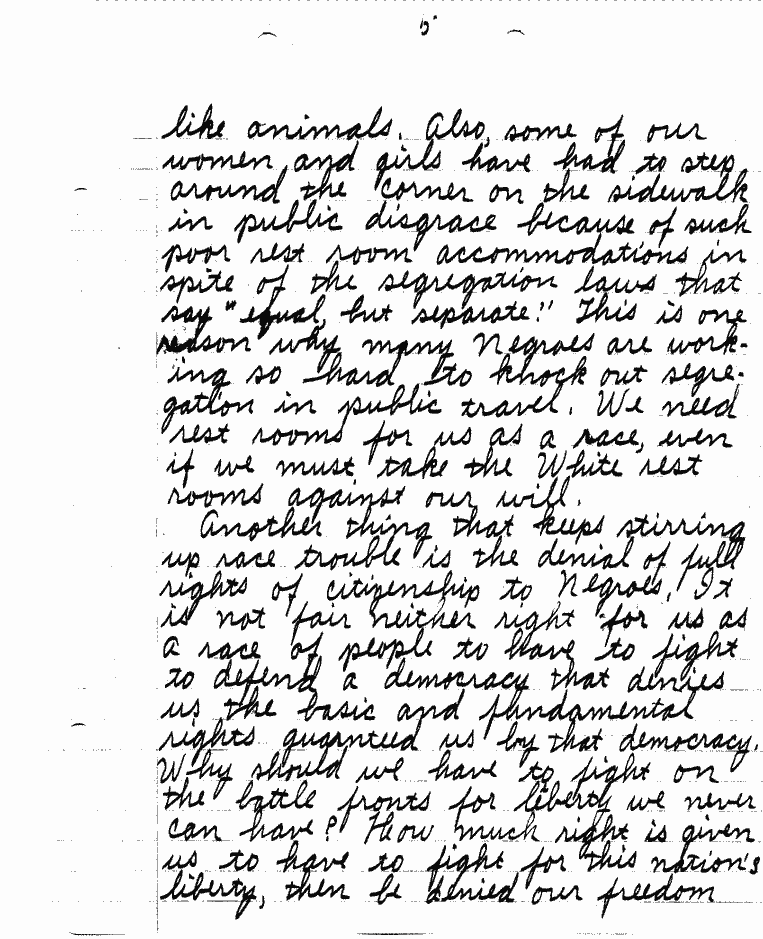 5
like animals. Also, some of our
women and girls have had to step
around the corner on the sidewalk
in public disgrace because of such
poor rest room accommodations in
spite of the segregation laws that
say "equal, but separate." This is one
reason why many Negroes are work-
ing so hard to knock out segre-
gation in public travel. We need
rest rooms for us as a race, even
if we must take the White rest
rooms against our will.
Another thing that keeps stirring
up race trouble is the denial of full
rights of citizenship to Negroes. It
is not fair neither right for us as
a race of people to have to fight
to defend a democracy that denies
us the basic and fundamental
rights guaranteed us by that democracy.
Why should we have to fight on
the battle fronts for liberty we never
can have? How much right is given
us to have to fight for this nation's
liberty, then be denied our freedom